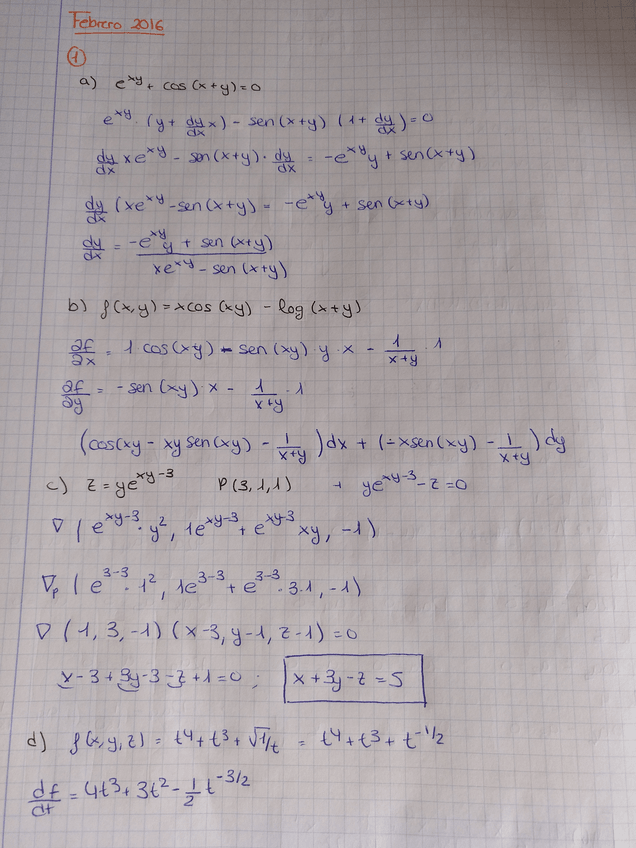 Febrero 2016
①
a) e^xy + cos (x+y) = 0
e^xy · (y + dy/dx x) - sen (x+y) (1 + dy/dx) = 0
dy/dx x e^xy - sen (x+y) · dy/dx = -e^xy y + sen (x+y)
dy/dx (x e^xy - sen (x+y) = -e^xy y + sen (x+y)
dy/dx = (-e^xy y + sen (x+y))/(x e^xy - sen (x+y))
b) f(x,y) = x cos (xy) - log (x+y)
∂f/∂x = 1 cos (xy) - sen (xy) y · x - 1/(x+y) · 1
∂f/∂y = - sen (xy) · x - 1/(x+y) · 1
(cos(xy - xy sen(xy) - 1/(x+y)) dx + (-x sen(xy) - 1/(x+y)) dy
c) z = ye^xy-3 P (3,1,1) + ye^xy-3 - z = 0
∇ (e^xy-3 · y², 1e^xy-3 + e^xy-3 xy, -1)
∇p (e^3-3 · 1², 1e^3-3 + e^3-3 · 3·1, -1)
∇ (1, 3, -1) (x-3, y-1, z-1) = 0
x - 3 + 3y - 3 - z + 1 = 0 ; x + 3y - z = 5
d) f(x,y,z) = t⁴ + t³ + √1/t = t⁴ + t³ + t^-1/2
df/dt = 4t³ + 3t² - 1/2 t^-3/2